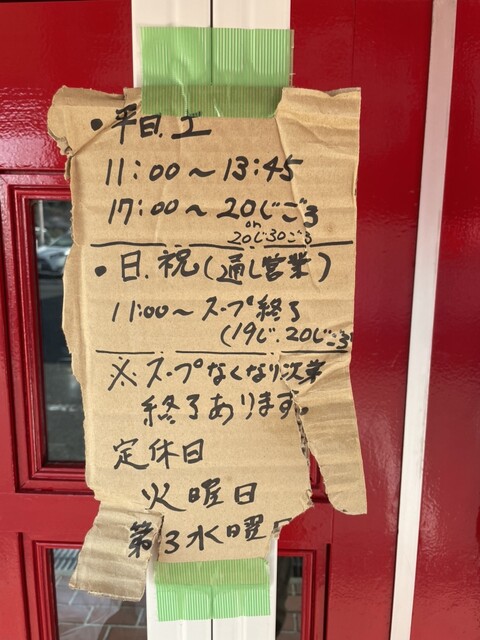 ・平日.土
11:00～13:45
17:00～20じごろ
or
20じ30ごろ
・日.祝(通し営業)
11:00～スープ終了
(19じ.20じごろ
※スープなくなり次第
終了あります。
定休日
火曜日
第3水曜日